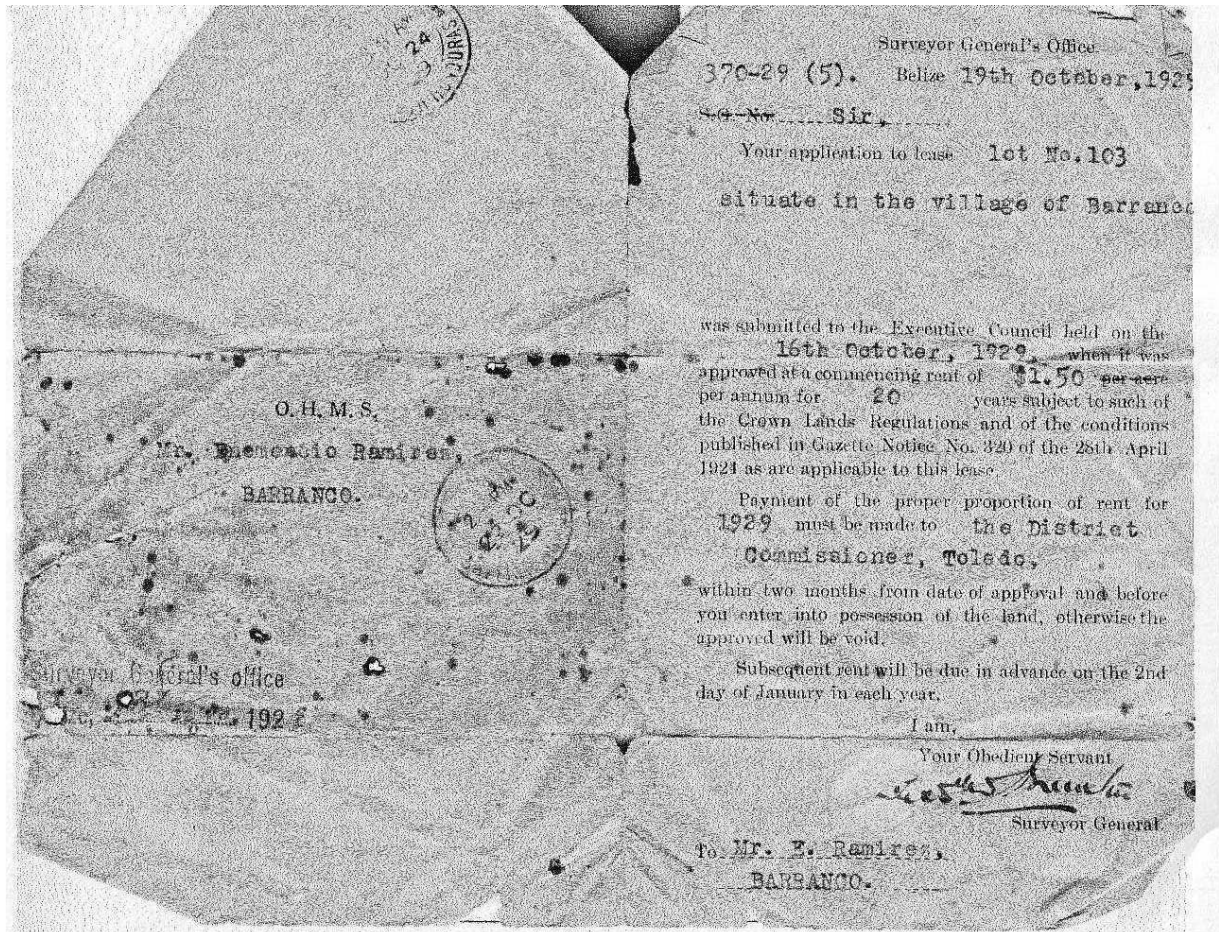 24
Surveyor General's Office
370-29 (5). Belize 19th October, 1929
S. G. No Sir,
Your application to lease lot No. 103
situate in the village of Barranco
was submitted to the Executive Council held on the
16th October, 1929, when it was
approved at a commencing rent of $1.50 per acre
per annum for 20 years subject to such of
the Crown Lands Regulations and of the conditions
published in Gazette Notice No. 320 of the 28th April
1924 as are applicable to this lease.
Payment of the proper proportion of rent for
1929 must be made to the District
Commissioner, Toledo,
within two months from date of approval and before
you enter into possession of the land, otherwise the
approved will be void.
Subsequent rent will be due in advance on the 2nd
day of January in each year.
I am,
Your Obedient Servant
Surveyor General.
To Mr. E. Ramirez,
BARRANCO.
O. H. M. S.
Mr. Ramirez,
BARRANCO.
OC
29
Surveyor General's office
192